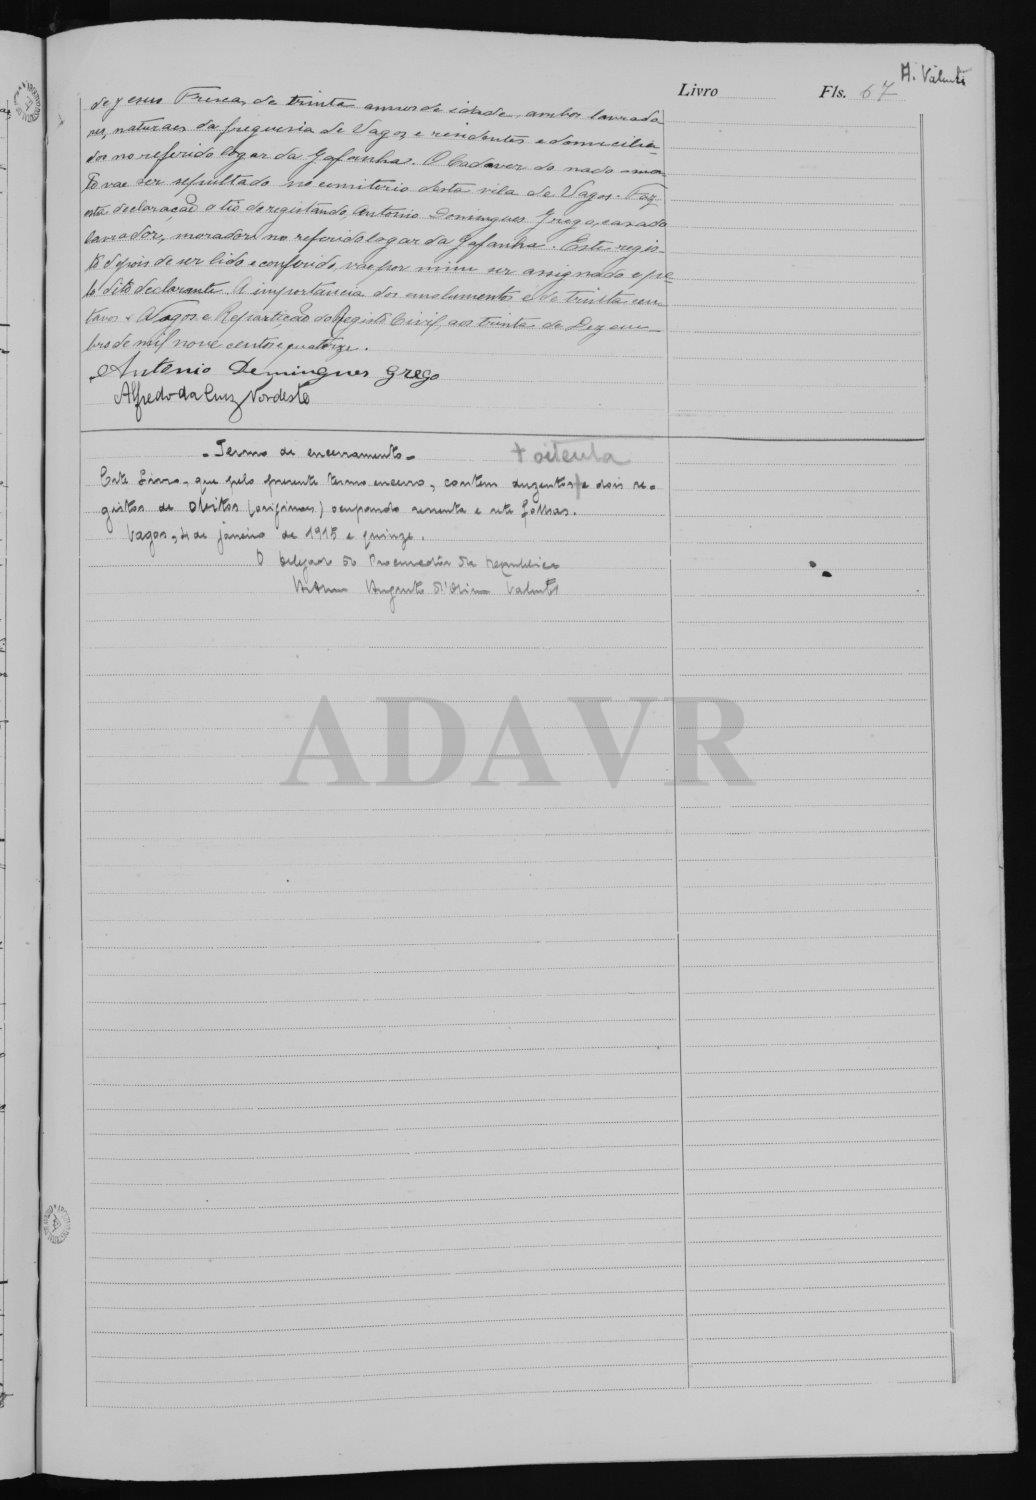 A. Valente
Livro Fls. 67
de Jesus Fresca, de trinta annos de idade, ambos lavrado-
res, naturaes da freguesia de Vagos e residentes e domicilia-
dos no referido logar da Gafanha. O Cadaver do nado mor-
to vae ser sepultado no cemiterio desta vila de Vagos. Fez
esta declaração o tio do registando, Antonio Domingues Grego, casado
lavrador, morador no referido logar da Gafanha. Este regis-
to depois de ser lido e conferido, vae por mim ser assignado e pe-
lo dito declarante. A importancia dos emolumentos é de trinta cen-
tavos. Vagos e Repartição do Registo Civil, aos trinta de Dezem-
bro de mil nove centos e quatorze.
Antonio Domingues Grego
Alfredo da Cruz Nordeste
- Termo de encerramento -
+ oitenta
Este Livro, que pelo presente termo encerro, contem duzentos + e dois re-
gistos de obitos (originais) ocupando sessenta e sete folhas.
Vagos, 4 de janeiro de 1915 e quinze.
O Delegado do Procurador da Republica
Augusto d'Oliveira Valente
ADAVR